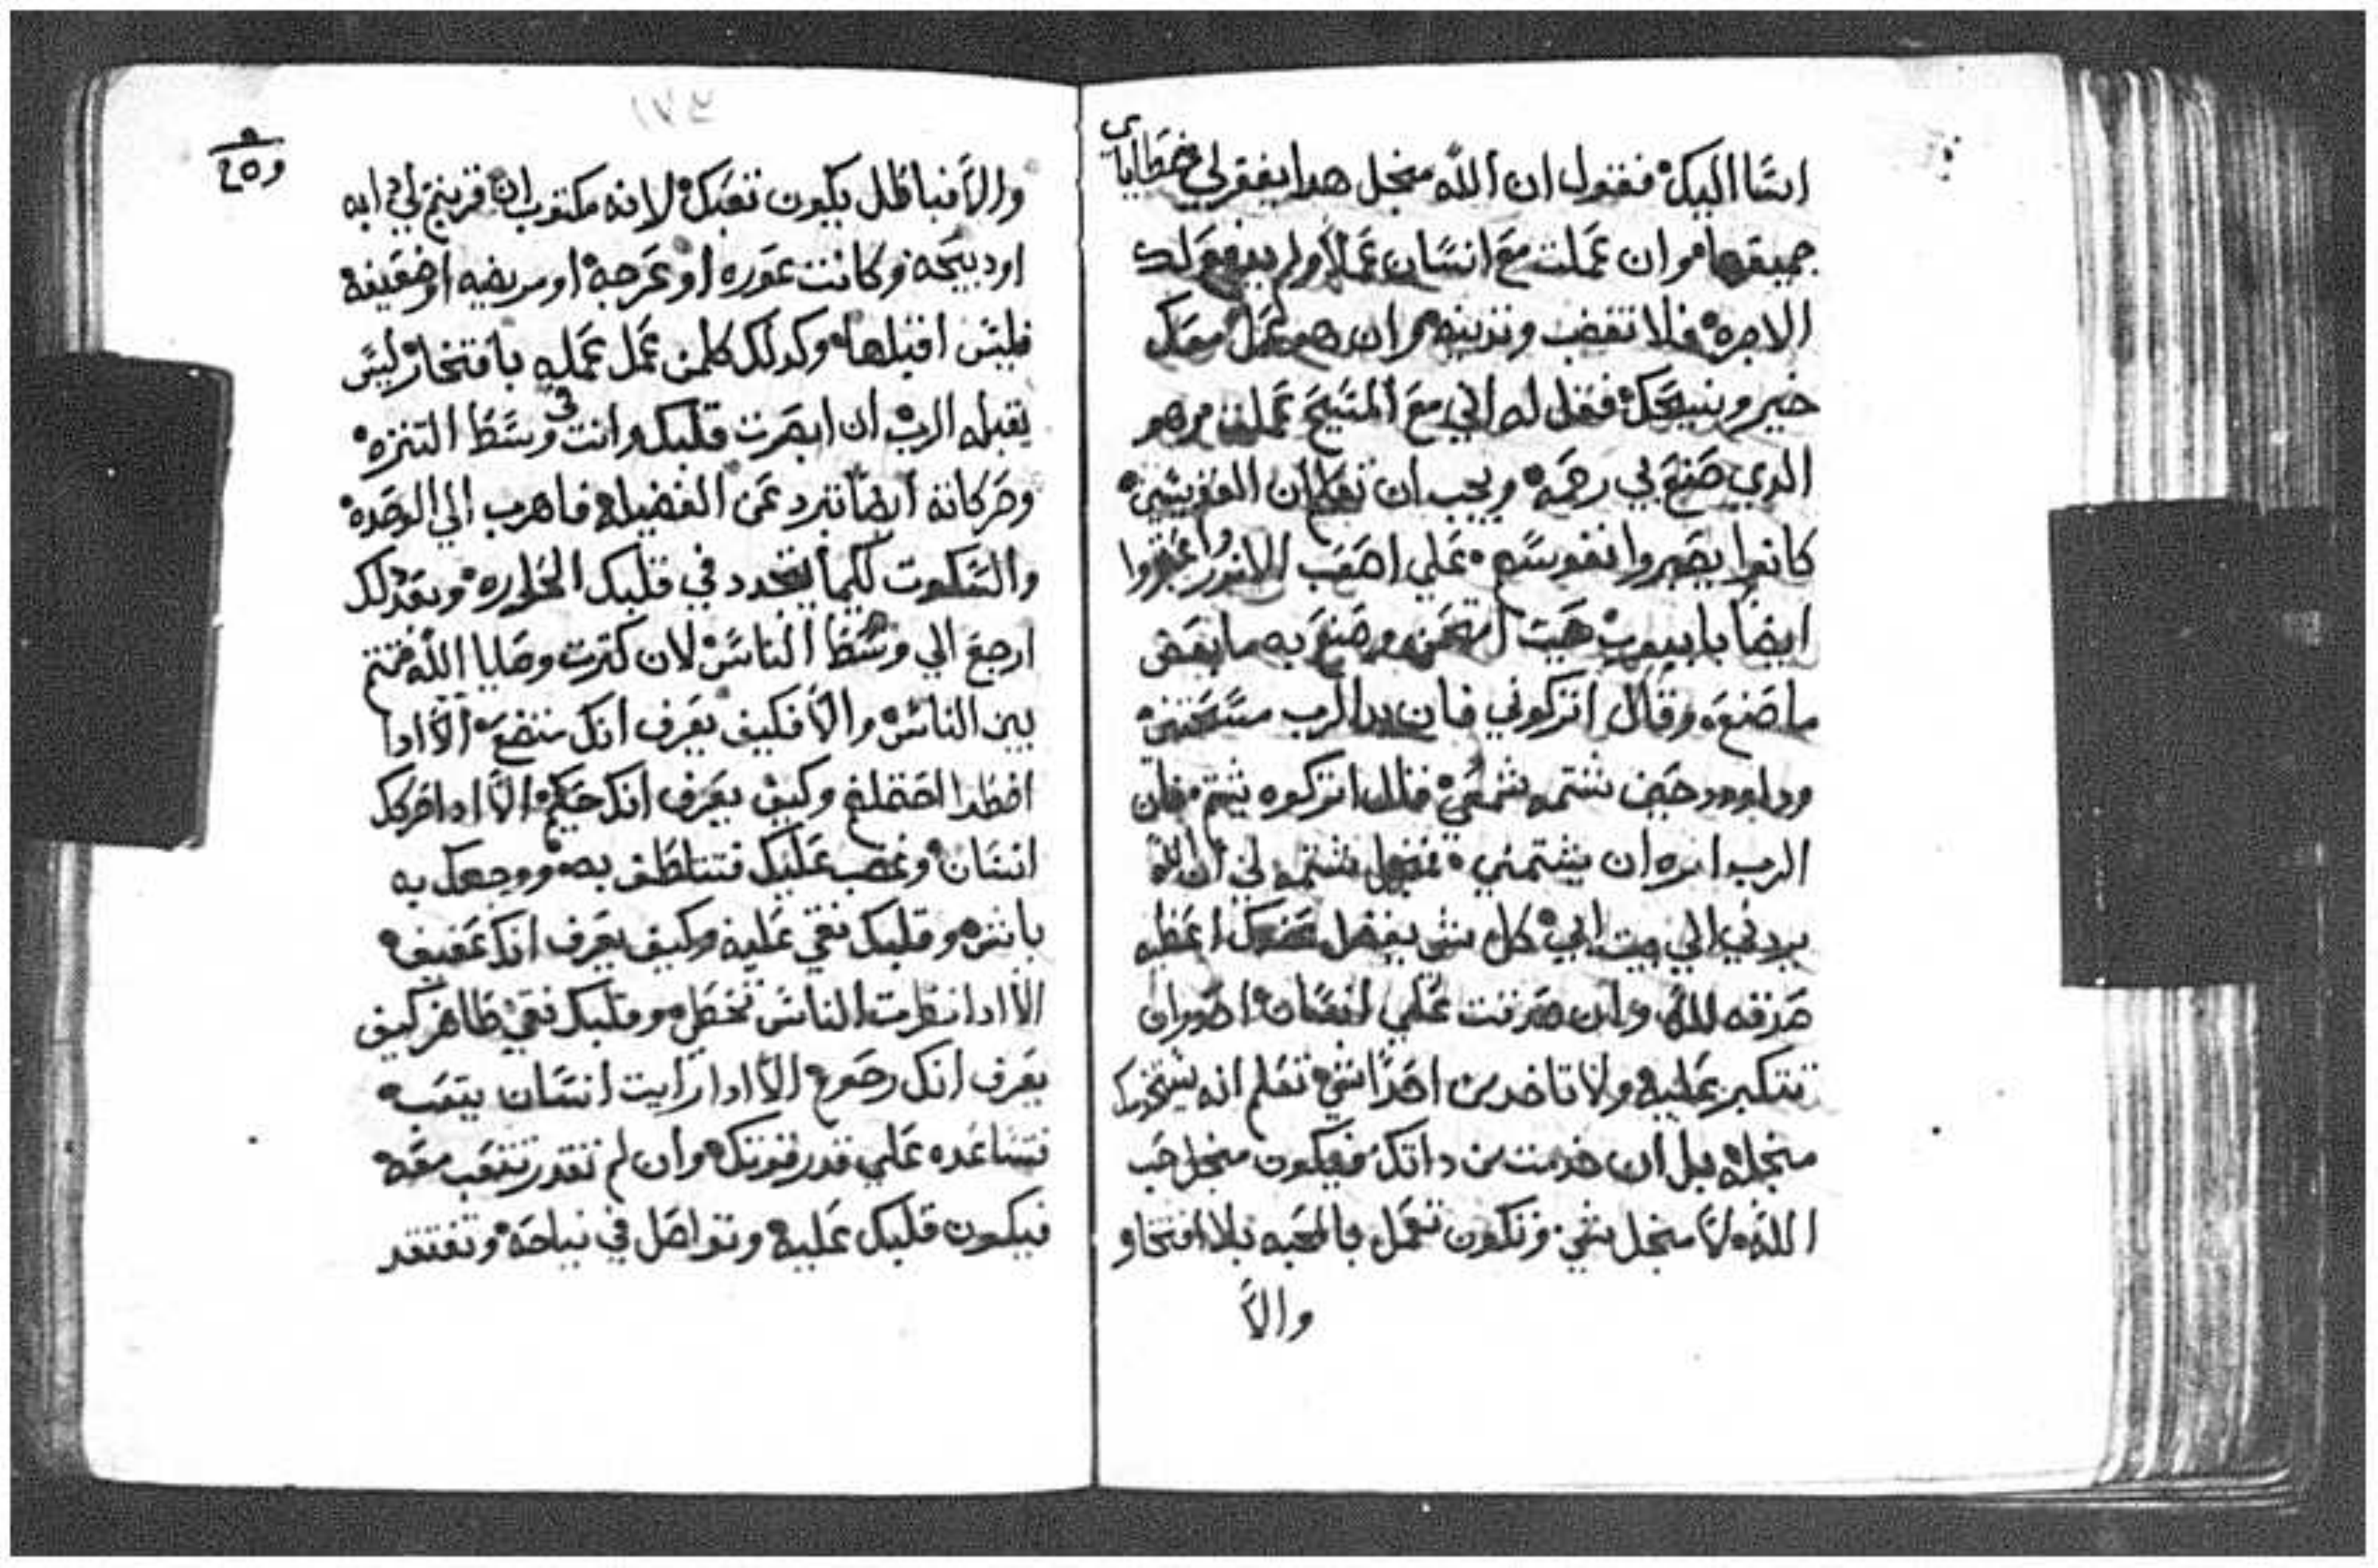 اسّا اليك فقول ان الله منجل هدا يغفر لي خطاياي
جميعها وان عملت مع انسان عملا ولم يدفع لك
الاجره فلا تغضب وتدينه وان هو عمل معك
خير وينيحك فقل له اني مع المسيح عملت هو
الدي صنع بي رحمه ويجب ان تعلم ان القديسين
كانوا يصبروا نفوسهم علي اصعب الامور
ايضا ايوب حيت امتحن وصنع به ما
ما صنع وقال اتركوني فان يد الرب مستني
وداوود حين شتمه شمعي قال اتركوه يشتم فان
الرب امره ان يشتمني لان الله
يردني الي بيت ابي كل شي يفضل عنك اعطه
صدقه لله وان صدقت علي انسان احدر ان
تتكبر عليه ولا تاخد من احدا شي تعلم انه
منجله بل ان خدمت من داتك فيكون منجل حب
الله لا منجل شي وتكون تعمل بالمحبه بلا افتخار
والا
١٧٤
والا فباطل يكون تعبك لانه مكتوب ان قربتم لي دابه
او دبيحه وكانت عوره او عرجه او مريضه او ضعيفه
فليس اقبلها وكدلك كلمن عمل عمله بافتخار ليس
يقبله الرب ان ابصرت قلبك وانت في وسط التنزه
وحركاته ايضا تبرد عن الفضيله فاهرب الي الوحده
والسكوت لكيما تتجدد في قلبك الحراره وبعد دلك
ارجع الي وسط الناس لان كترت وصايا الله فتتم
بين الناس والا فكيف يعرف انك متضع الا ادا
وكيف يعرف انك حكيم الا ادا
انسان وغصب عليك فتتلطف به ووجعك به
باتره وقلبك نقي عليه وكيف يعرف انك عفيف
الا ادا نظرت الناس تخطي وقلبك نقي طاهر كيف
يعرف انك رحوم الا ادا رايت انسان يتعب
تساعده علي قدر قوتك وان لم تقدر تتعب معه
فيكون قلبك عليه وتواصل في نياحه وتفتقد